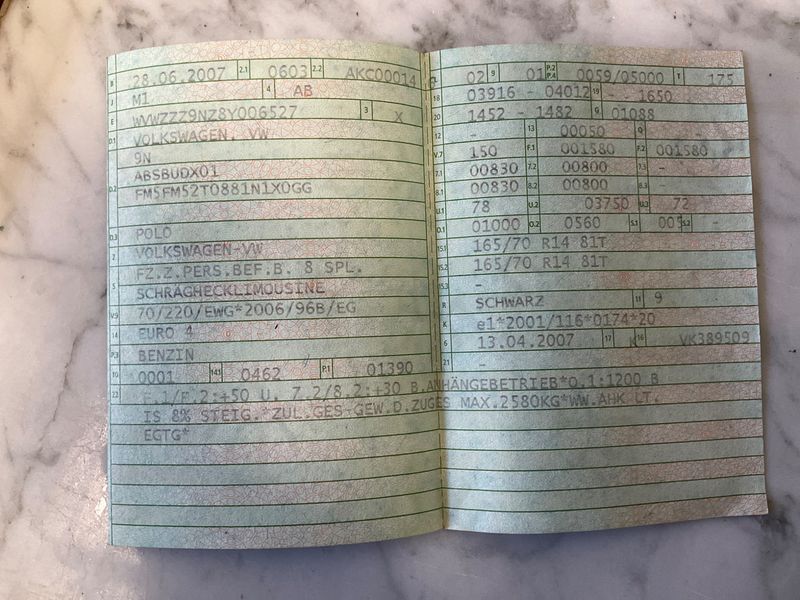 B 28.06.2007 2.1 0603 2.2 AKC00014
J M1 4 AB
E WVWZZZ9NZ8Y006527 3 X
D.1 VOLKSWAGEN, VW
9N
D.2 ABSBUDX01
FM5FM52T0881N1X0GG
D.3 POLO
2 VOLKSWAGEN-VW
FZ.Z.PERS.BEF.B. 8 SPL.
5 SCHRÄGHECKLIMOUSINE
V.9 70/220/EWG*2006/96B/EG
14 EURO 4
P.3 BENZIN
10 0001 14.1 0462 P.1 01390
L 02 9 01 P.2 P.4 0059/05000 T 175
18 03916 - 04012 19 - 1650
20 1452 - 1482 G 01088
12 - 13 00050 Q -
V.7 150 F.1 001580 F.2 001580
7.1 00830 7.2 00800 7.3 -
8.1 00830 8.2 00800 8.3 -
U.1 78 U.2 03750 U.3 72
O.1 01000 O.2 0560 S.1 005 S.2 -
15.1 165/70 R14 81T
15.2 165/70 R14 81T
15.3 -
R SCHWARZ 11 9
K e1*2001/116*0174*20
6 13.04.2007 17 K 16 VK389509
21 -
22 F.1/F.2:+50 U. 7.2/8.2:+30 B.ANHÄNGEBETRIEB*O.1:1200 B
IS 8% STEIG.*ZUL.GES-GEW.D.ZUGES MAX.2580KG*WW.AHK LT.
EGTG*